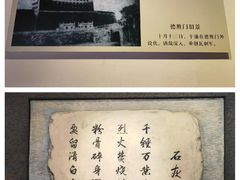 德胜门旧景
十月十三日，于谦在德胜门外
设伏，诱敌深入，重创瓦剌军。
石灰
千锤万
烈火焚烧
粉骨碎身
要留清白